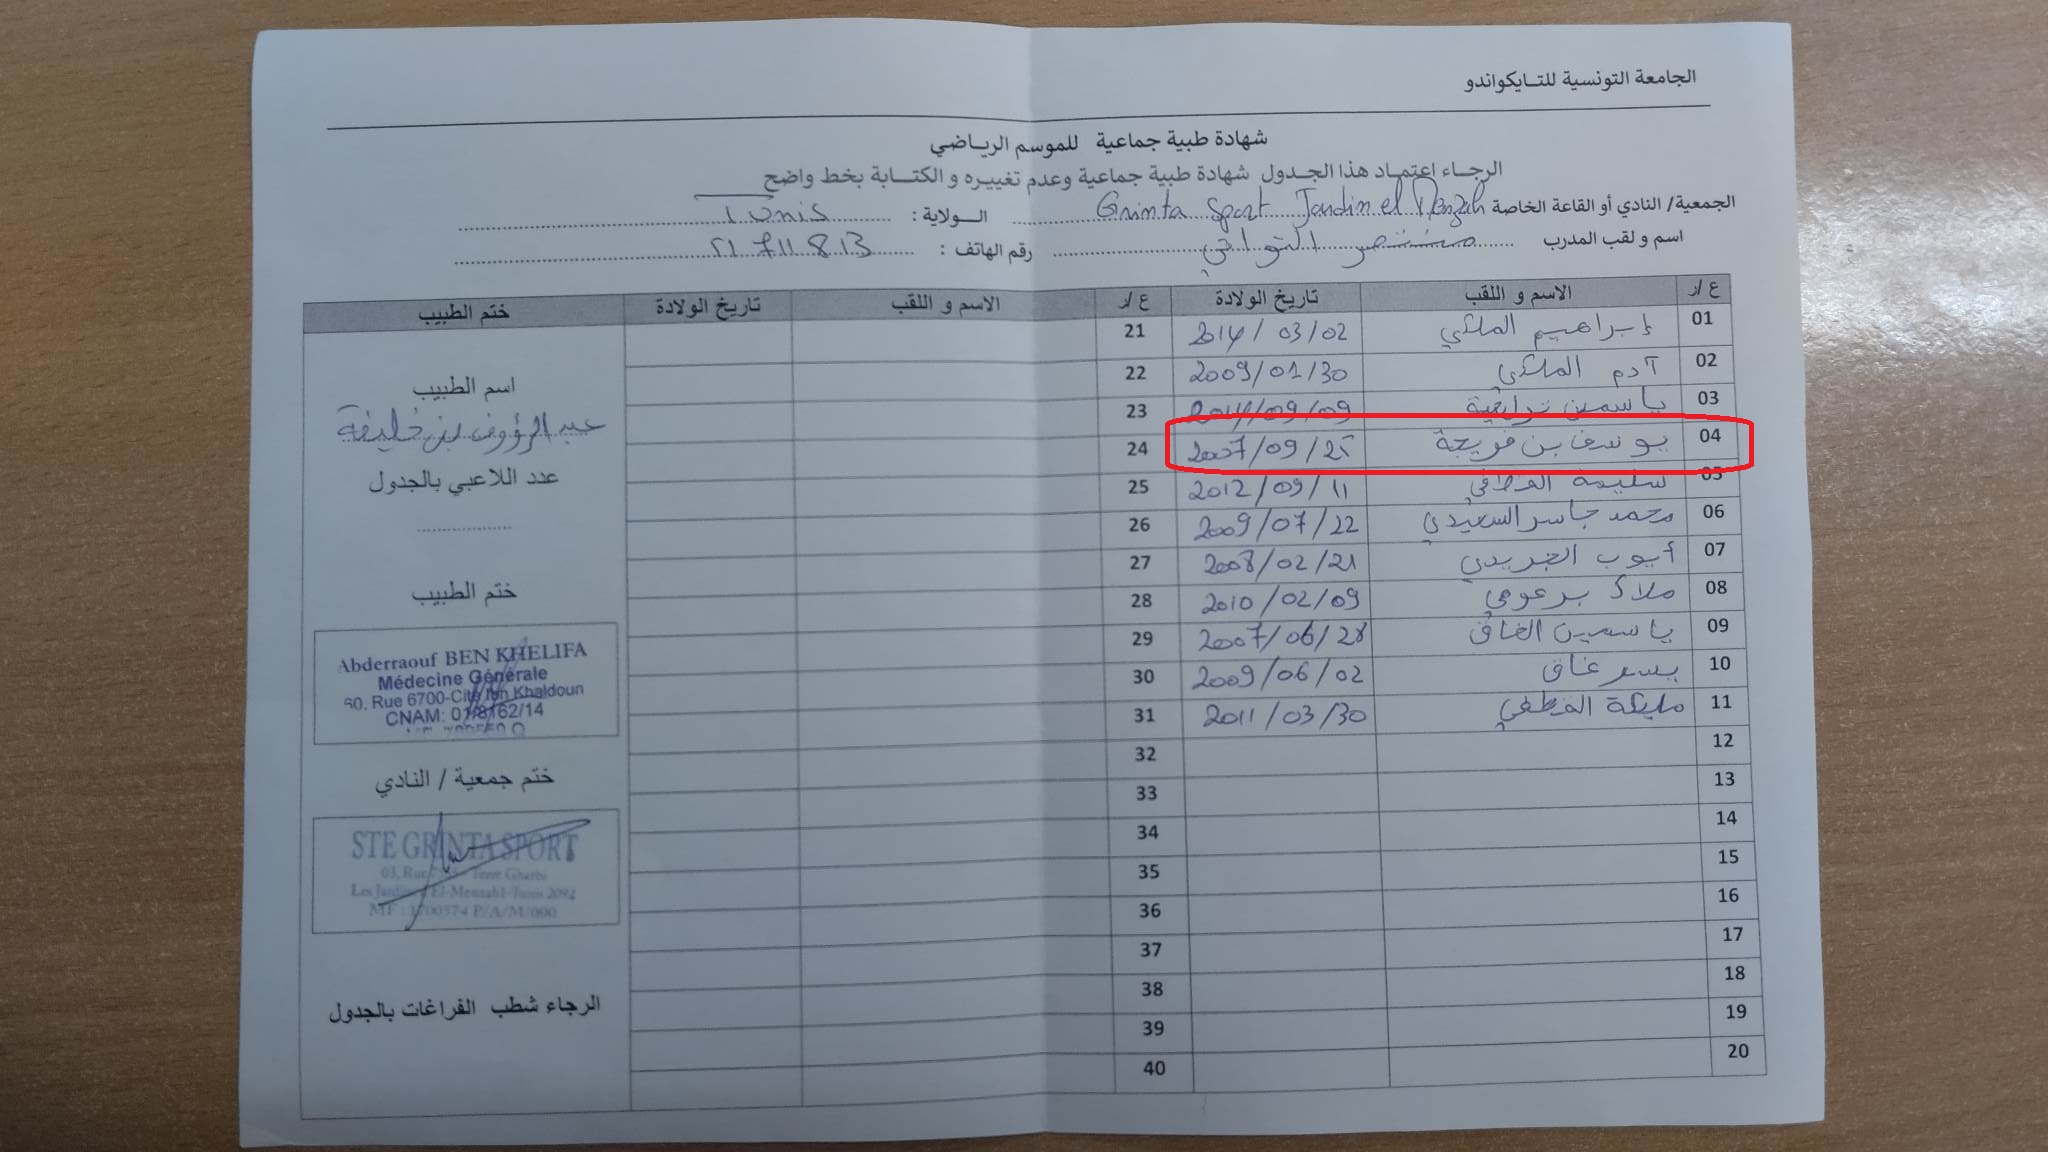 الجامعة التونسية للتايكواندو
شهادة طبية جماعية للموسم الرياضي
الرجاء اعتماد هذا الجدول شهادة طبية جماعية وعدم تغييره و الكتابة بخط واضح
الجمعية/ النادي أو القاعة الخاصة Grinta Sport Jardin el Menzah الولاية : Tunis
اسم و لقب المدرب منتصر التواتي رقم الهاتف : 21 711 813
ع/ر الاسم و اللقب تاريخ الولادة ع/ر الاسم و اللقب تاريخ الولادة ختم الطبيب
01 إبراهيم المكي 2014/03/02 21
02 آدم المكي 2009/01/30 22
03 ياسمين 2014/09/09 23
04 يوسف بن فريجة 2007/09/25 24
05 سليمة 2012/09/11 25
06 محمد جاسر السعيدي 2009/07/22 26
07 أيوب الجريدي 2008/02/21 27
08 ملاك برعومي 2010/02/09 28
09 ياسمين الغاق 2007/06/28 29
10 يسر غاق 2009/06/02 30
11 مليكة 2011/03/30 31
12 32
13 33
14 34
15 35
16 36
17 37
18 38
19 39
20 40
اسم الطبيب
عبد الرؤوف بن خليفة
عدد اللاعبي بالجدول
ختم الطبيب
Abderraouf BEN KHELIFA
Médecine Générale
60, Rue 6700-Cité Ibn Khaldoun
CNAM: 01/8162/14
ختم جمعية / النادي
STE GRINTA SPORT
03, Rue Terre Gharbi
Les Jardins El-Menzah1-Tunis 2092
MF : 1700574 P/A/M/000
الرجاء شطب الفراغات بالجدول